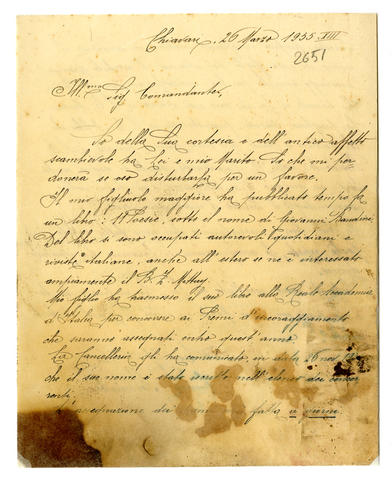 Chiavari, 26 Marzo 1935 XIII
2651
Ill.mo Sig Comandante,
So della Sua cortesia e dell'antico affetto
scambievole fra Lei e mio Marito. So che mi per-
donerà se oso disturbarLa per un favore.
Il mio figliuolo maggiore ha pubblicato tempo fa
un libro: "Poesie", sotto il nome di Giovanni
Del libro si sono occupati autorevoli quotidiani e
riviste italiane, anche all'estero se ne è interessato
ampiamente il B. Z. Mittag.
Mio figlio ha trasmesso il suo libro alla Reale Accademia
d'Italia per concorrere ai Premi d'incoraggiamento
che saranno assegnati entro quest'anno.
La Cancelleria gli ha comunicato, in data 26 nov.
che il suo nome è stato iscritto nell'elenco dei concor-
renti.
L'assegnazione dei fatta a giorni